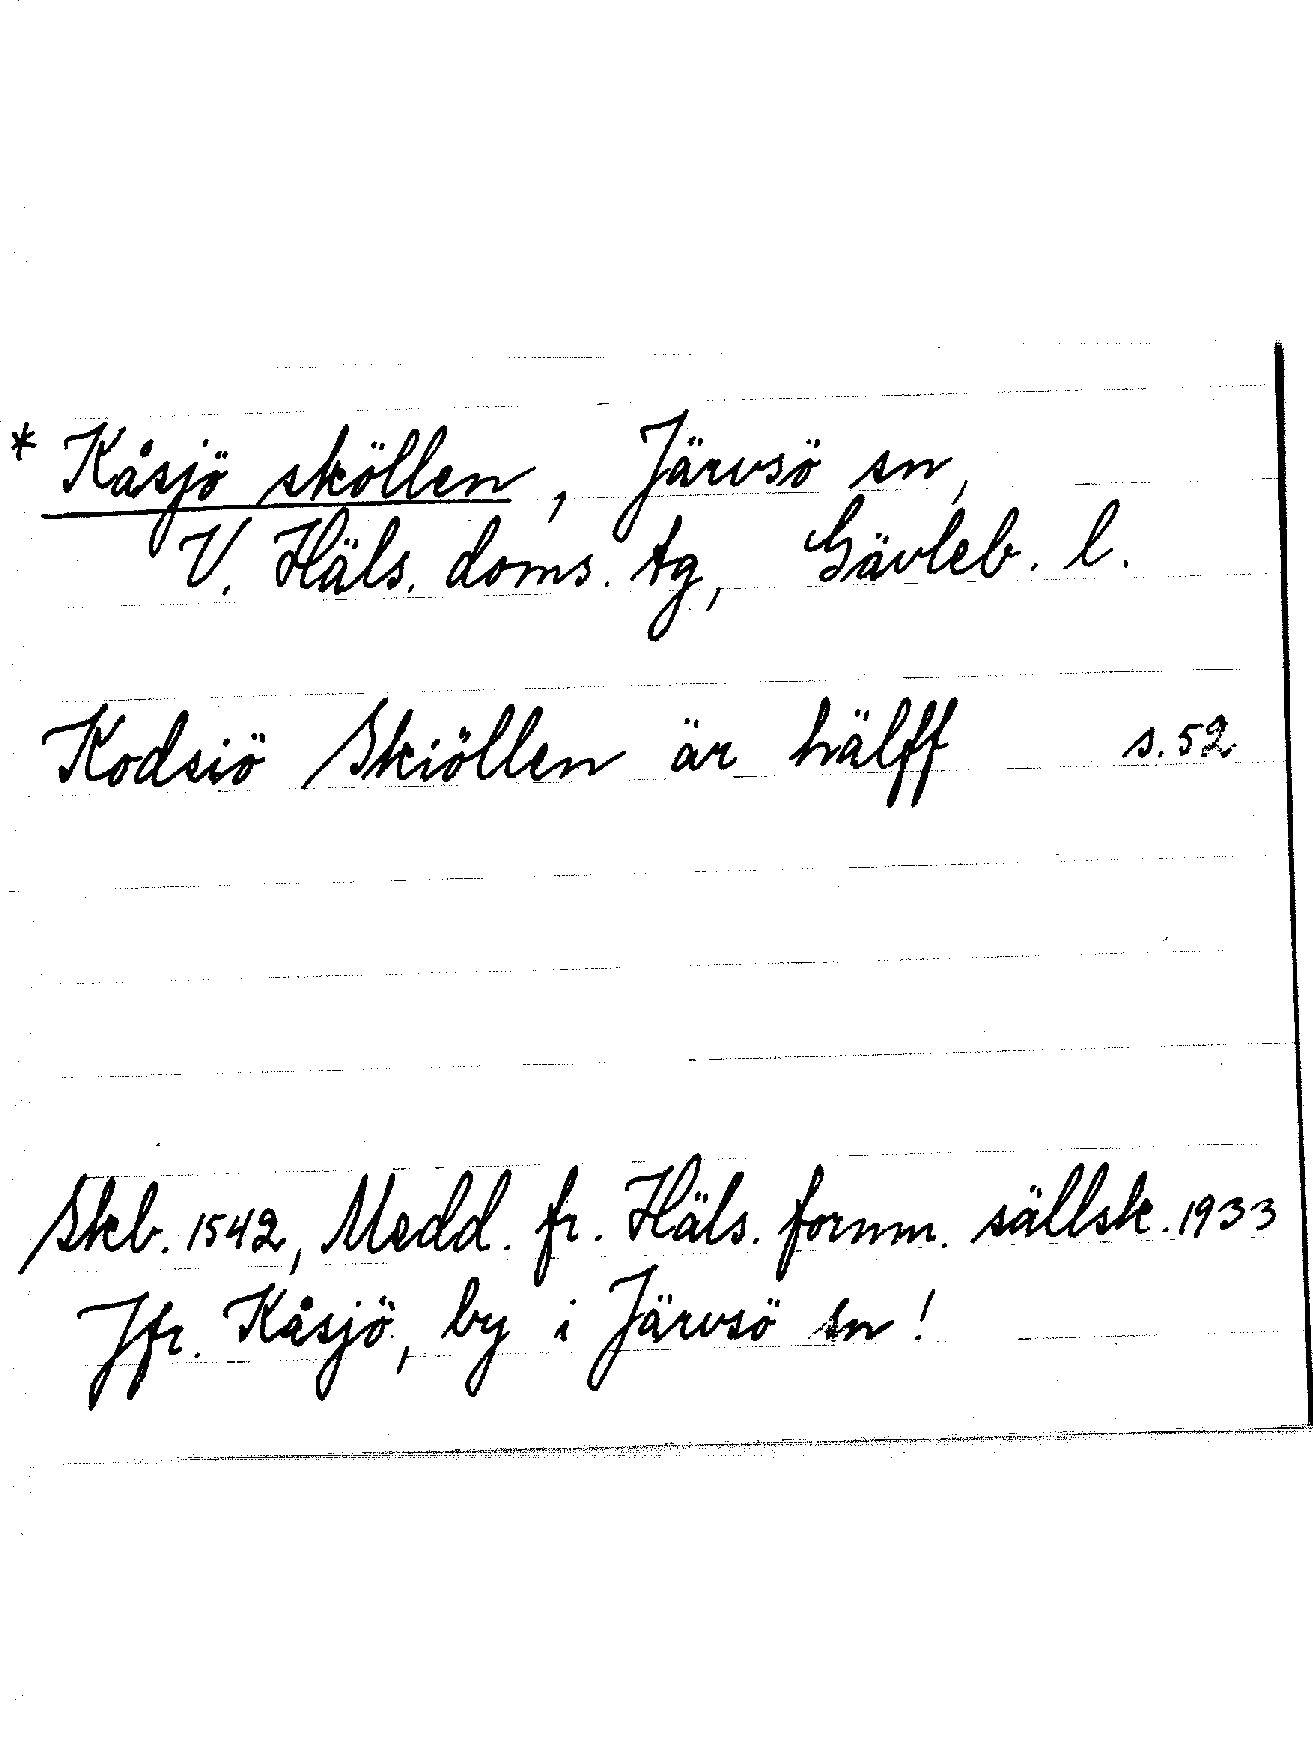 * Kåsjö sköllen, Järvsö sn,
V. Häls. doms. tg, Gävleb. l.
Kodsiö Skiöllen är hälff s. 52
Skb. 1542, Medd. fr. Häls. fornm. sällsk. 1933
Jfr. Kåsjö, by i Järvsö sn!